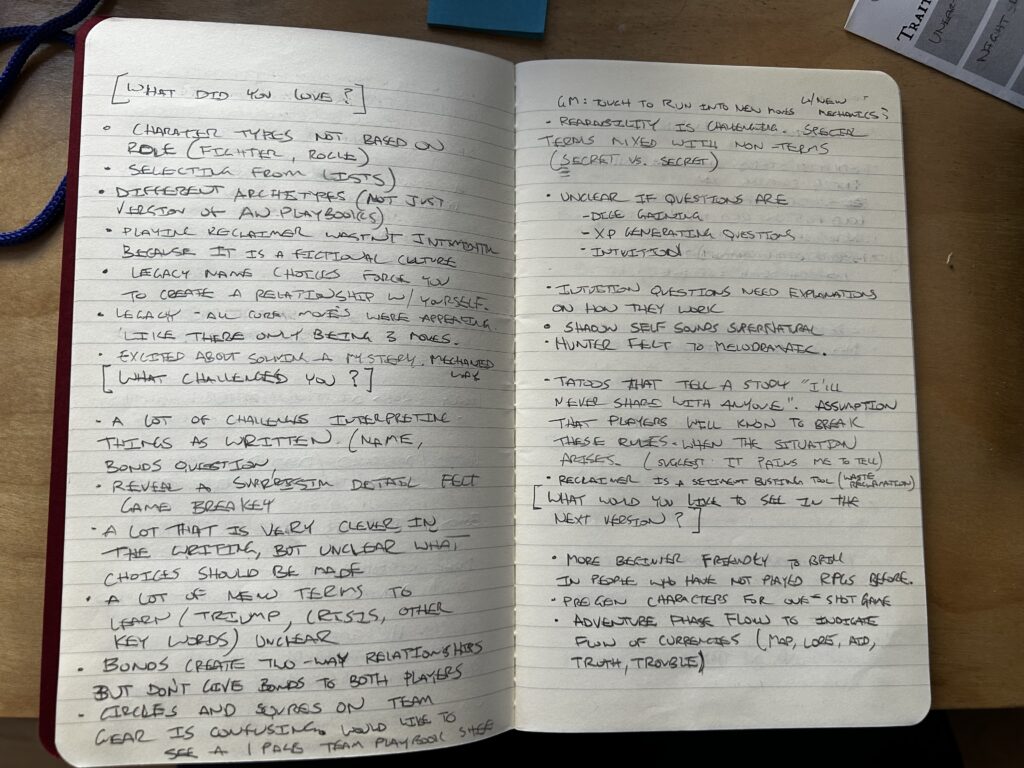 [WHAT DID YOU LOVE?]
• CHARATER TYPES NOT BASED ON
ROLE (FIGHTER, ROGUE)
• SELECTING FROM LISTS)
• DIFFERENT ARCHITYPES (NOT JUST
VERSION OF AN PLAYBOOKS)
• PLAYING RECLAIMER WASTN'T
BECAUSE IT IS A FICTIONAL CULTURE
• LEGACY NAME CHOICES FORCE YOU
TO CREATE A RELATIONSHIP W/ YOURSELF.
• LEGACY - ALL CORE MOVES WERE APPEALING
LIKE THERE ONLY BEING 3 MOVES.
• EXCITED ABOUT SOLVING A MYSTERY. MECHANIED
WAY
[WHAT CHALLENGED YOU?]
• A LOT OF CHALLENGES INTERPRETING
THINGS AS WRITTEN. (NAME,
BONDS QUESTION,
• REVEAL A DETAIL FELT
GAME BREAKEY
• A LOT THAT IS VERY CLEVER IN
THE WRITING, BUT UNCLEAR WHAT
CHOICES SHOULD BE MADE
• A LOT OF NEW TERMS TO
LEARN (TRIUMP, CRISIS, OTHER
KEY WORDS) UNCLEAR
• BONDS CREATE TWO-WAY RELATIONSHIPS
BUT DON'T GIVE BONDS TO BOTH PLAYERS
• CIRCLES AND SQURES ON TEAM
GEAR IS CONFUSING. WOULD LIKE TO
SEE A 1 PAGE TEAM PLAYBOOK SHEE
GM: TOUCH TO RUN INTO NEW MOVES W/ NEW
MECHANICS?
• READABILITY IS CHALLENGING. SPECIAL
TERMS MIXED WITH NON-TERMS
(SECRET VS. SECRET)
• UNCLEAR IF QUESTIONS ARE
- DICE GAINING
- XP GENERATING QUESTIONS
- INTUITION
• INTUITION QUESTIONS NEED EXPLANATIONS
ON HOW THEY WORK
• SHADOW SELF SOUNDS SUPERNATURAL
• HUNTER FELT TO MELODRAMATIC.
• TATOOS THAT TELL A STORY "I'LL
NEVER SHARE WITH ANYONE". ASSUMPTION
THAT PLAYERS WILL KNOW TO BREAK
THESE RULES. WHEN THE SITUATION
ARISES. (SUGGEST: IT PAINS ME TO TELL)
• RECLAIMER IS A SEDIMENT BUSTING TOOL (WASTE
RECLAMATION)
[WHAT WOULD YOU LIKE TO SEE IN THE
NEXT VERSION?]
• MORE BEGINER FRIENDLY TO BRING
IN PEOPLE WHO HAVE NOT PLAYED RPGS BEFORE.
• PREGEN CHARACTERS FOR ONE-SHOT GAME
• ADVENTURE PHASE FLOW TO INDICATE
FLOW OF CURRENCIES (MAP, LORE, AID,
TRUTH, TROUBLE)
TRAI
NIGHT